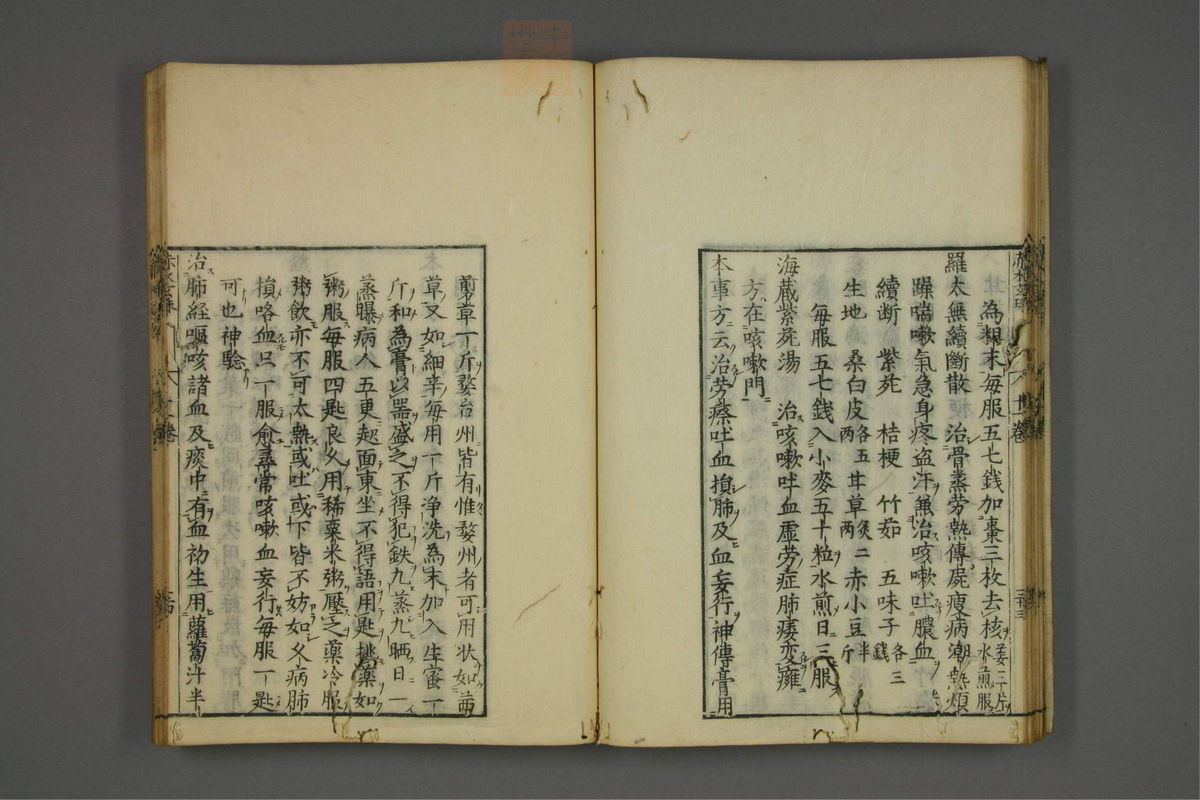 為粗末每服五七錢加棗三枚去核姜三片水煎服
羅太無續斷散 治骨蒸勞熱傳屍瘦病潮熱煩
躁喘嗽氣急身疼盗汗兼治咳嗽吐膿血
續断 紫菀 桔梗 竹茹 五味子各三錢
生地 桑白皮各五両 甘草炙二両 赤小豆半斤
每服五七錢入小麥五十粒水煎日三服
海蔵紫菀湯 治咳嗽吐血虛勞症肺痿変癰
方在咳嗽門
本事方云治労瘵吐血損肺及血妄行神傳膏用
剪草一斤婺台州皆有惟婺州者可用状如茜
草又如細辛每用一斤净洗為末加入生蜜一
斤和為膏以器盛之不得犯鉄九蒸九晒日一
蒸曝病人五更起面東坐不得語用匙挑藥如
粥服每服四匙良久用稀粟米粥壓之藥冷服
粥飲亦不可太熱或吐或下皆不妨如久病肺
損咯血只一服愈尋常咳嗽血妄行每服一匙
可也神驗
治肺経嘔咳諸血及痰中有血初生用蘿蔔汁半